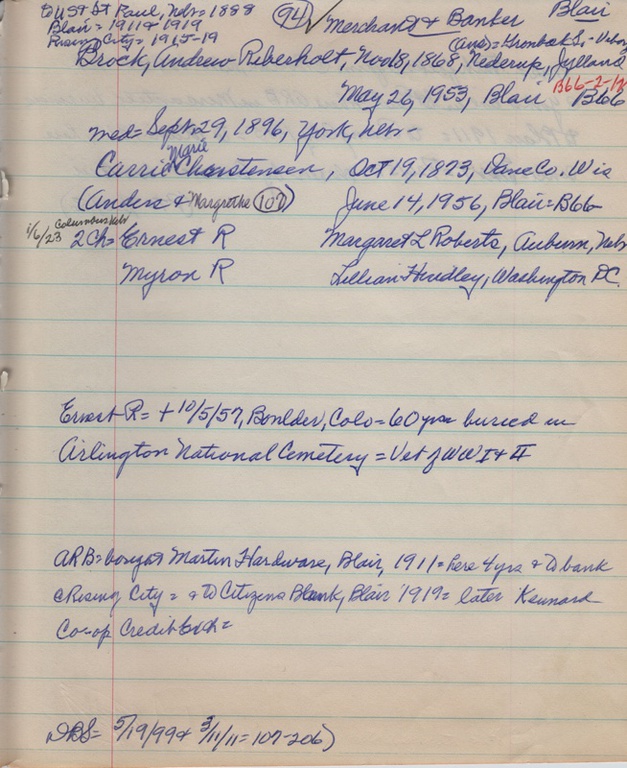 to US St Paul, Nebr = 1888
Blair = 1911 & 1919
Rising City = 1915-19
94 Merchant & Banker Blair
Brock, Andrew Riberholt, Nov 8, 1868, Nederup, Jylland
B66-2-
May 26, 1953, Blair B66
med = Sept 29, 1896, York, Nebr -
Marie
Carrie Christensen, Oct 19, 1873, Dane Co. Wis
(Anders & Margrethe 107) June 14, 1956, Blair = B66
Columbus Nebr
1/6/23 2 Ch = Ernest R Margaret L Roberts, Auburn, Nebr
Myron R Lillian Hindley, Washington DC.
Ernest R = + 10/5/57, Boulder, Colo = 60 yrs buried in
Arlington National Cemetery = Vet of WW I & II
ARB = bought Martin Hardware, Blair, 1911 = here 4 yrs & to bank
@ Rising City = & to Citizens Bank, Blair 1919 = later Kennard
Co-op Credit Exch =
DBS = 5/19/99 & 3/11/11 = 107-206)